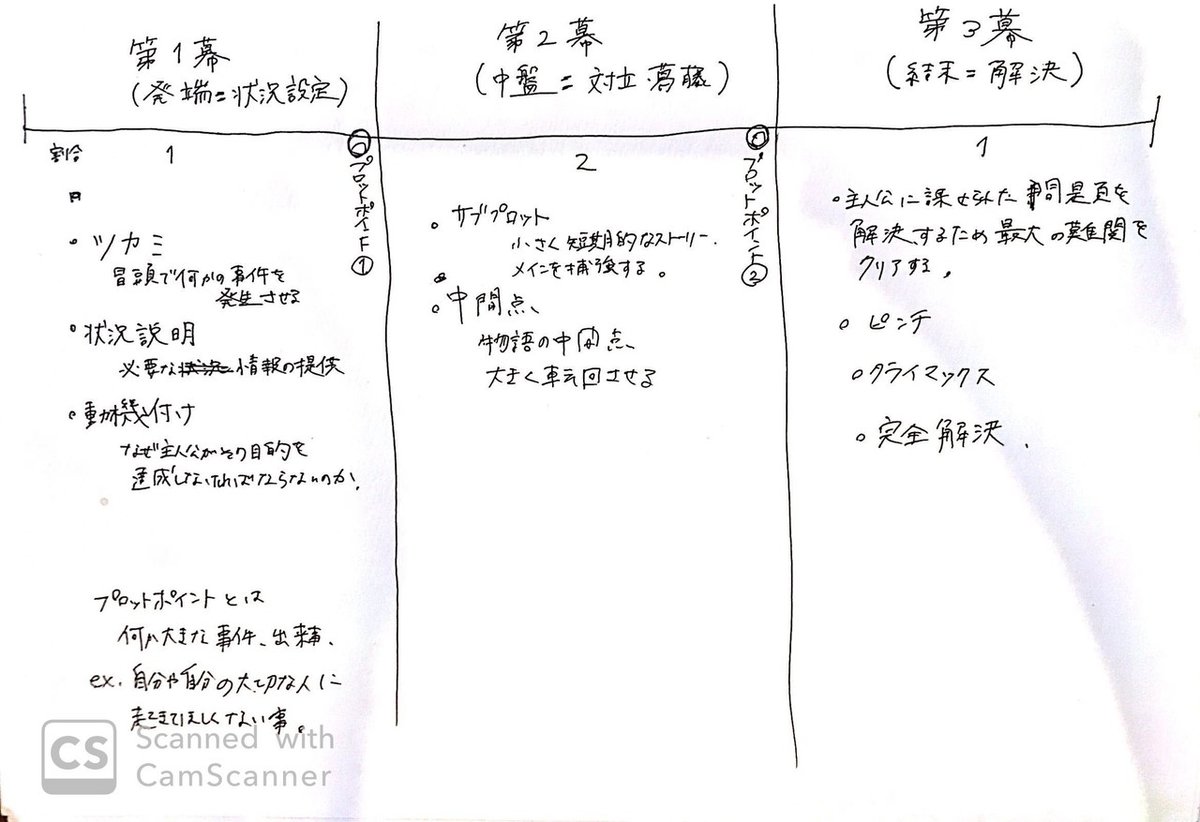 第1幕
(発端=状況設定)
割合
1
プロットポイント①
・ツカミ
冒頭で何かの事件を
発生させる
・状況説明
必要な情報の提供
・動機付け
なぜ主人公がその目的を
達成しなければならないのか、
プロットポイントとは
何か大きな事件、出来事、
ex. 自分や自分の大切な人に
起きてほしくない事。
第2幕
(中盤=対立 葛藤)
2
プロットポイント②
・サブプロット
小さく短期的なストーリー、
メインを補強する。
・中間点、
物語の中間点、
大きく転回させる
第3幕
(結末=解決)
1
・主人公に課せられた問題を
解決するため最大の難関を
クリアする。
・ピンチ
・クライマックス
・完全解決、
CS Scanned with
CamScanner